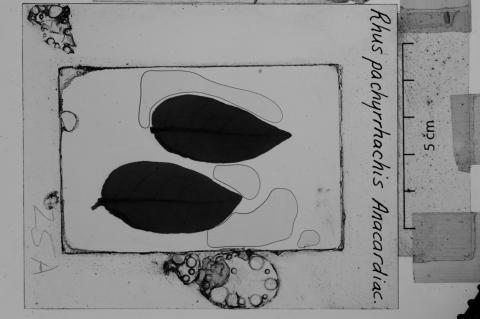 Rhus pachyrrhachis Anacardiac.
5 cm
25A